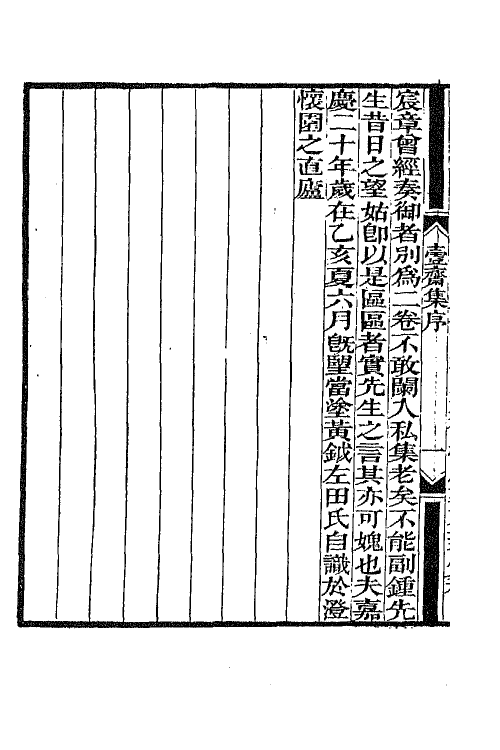 宸章曾經奏御者別爲二卷不敢闌入私集老矣不能副鍾先
生昔日之望姑卽以是區區者實先生之言其亦可媿也夫嘉
慶二十年歲在乙亥夏六月旣望當塗黃鉞左田氏自識於澄
懷園之直廬
壹齋集序